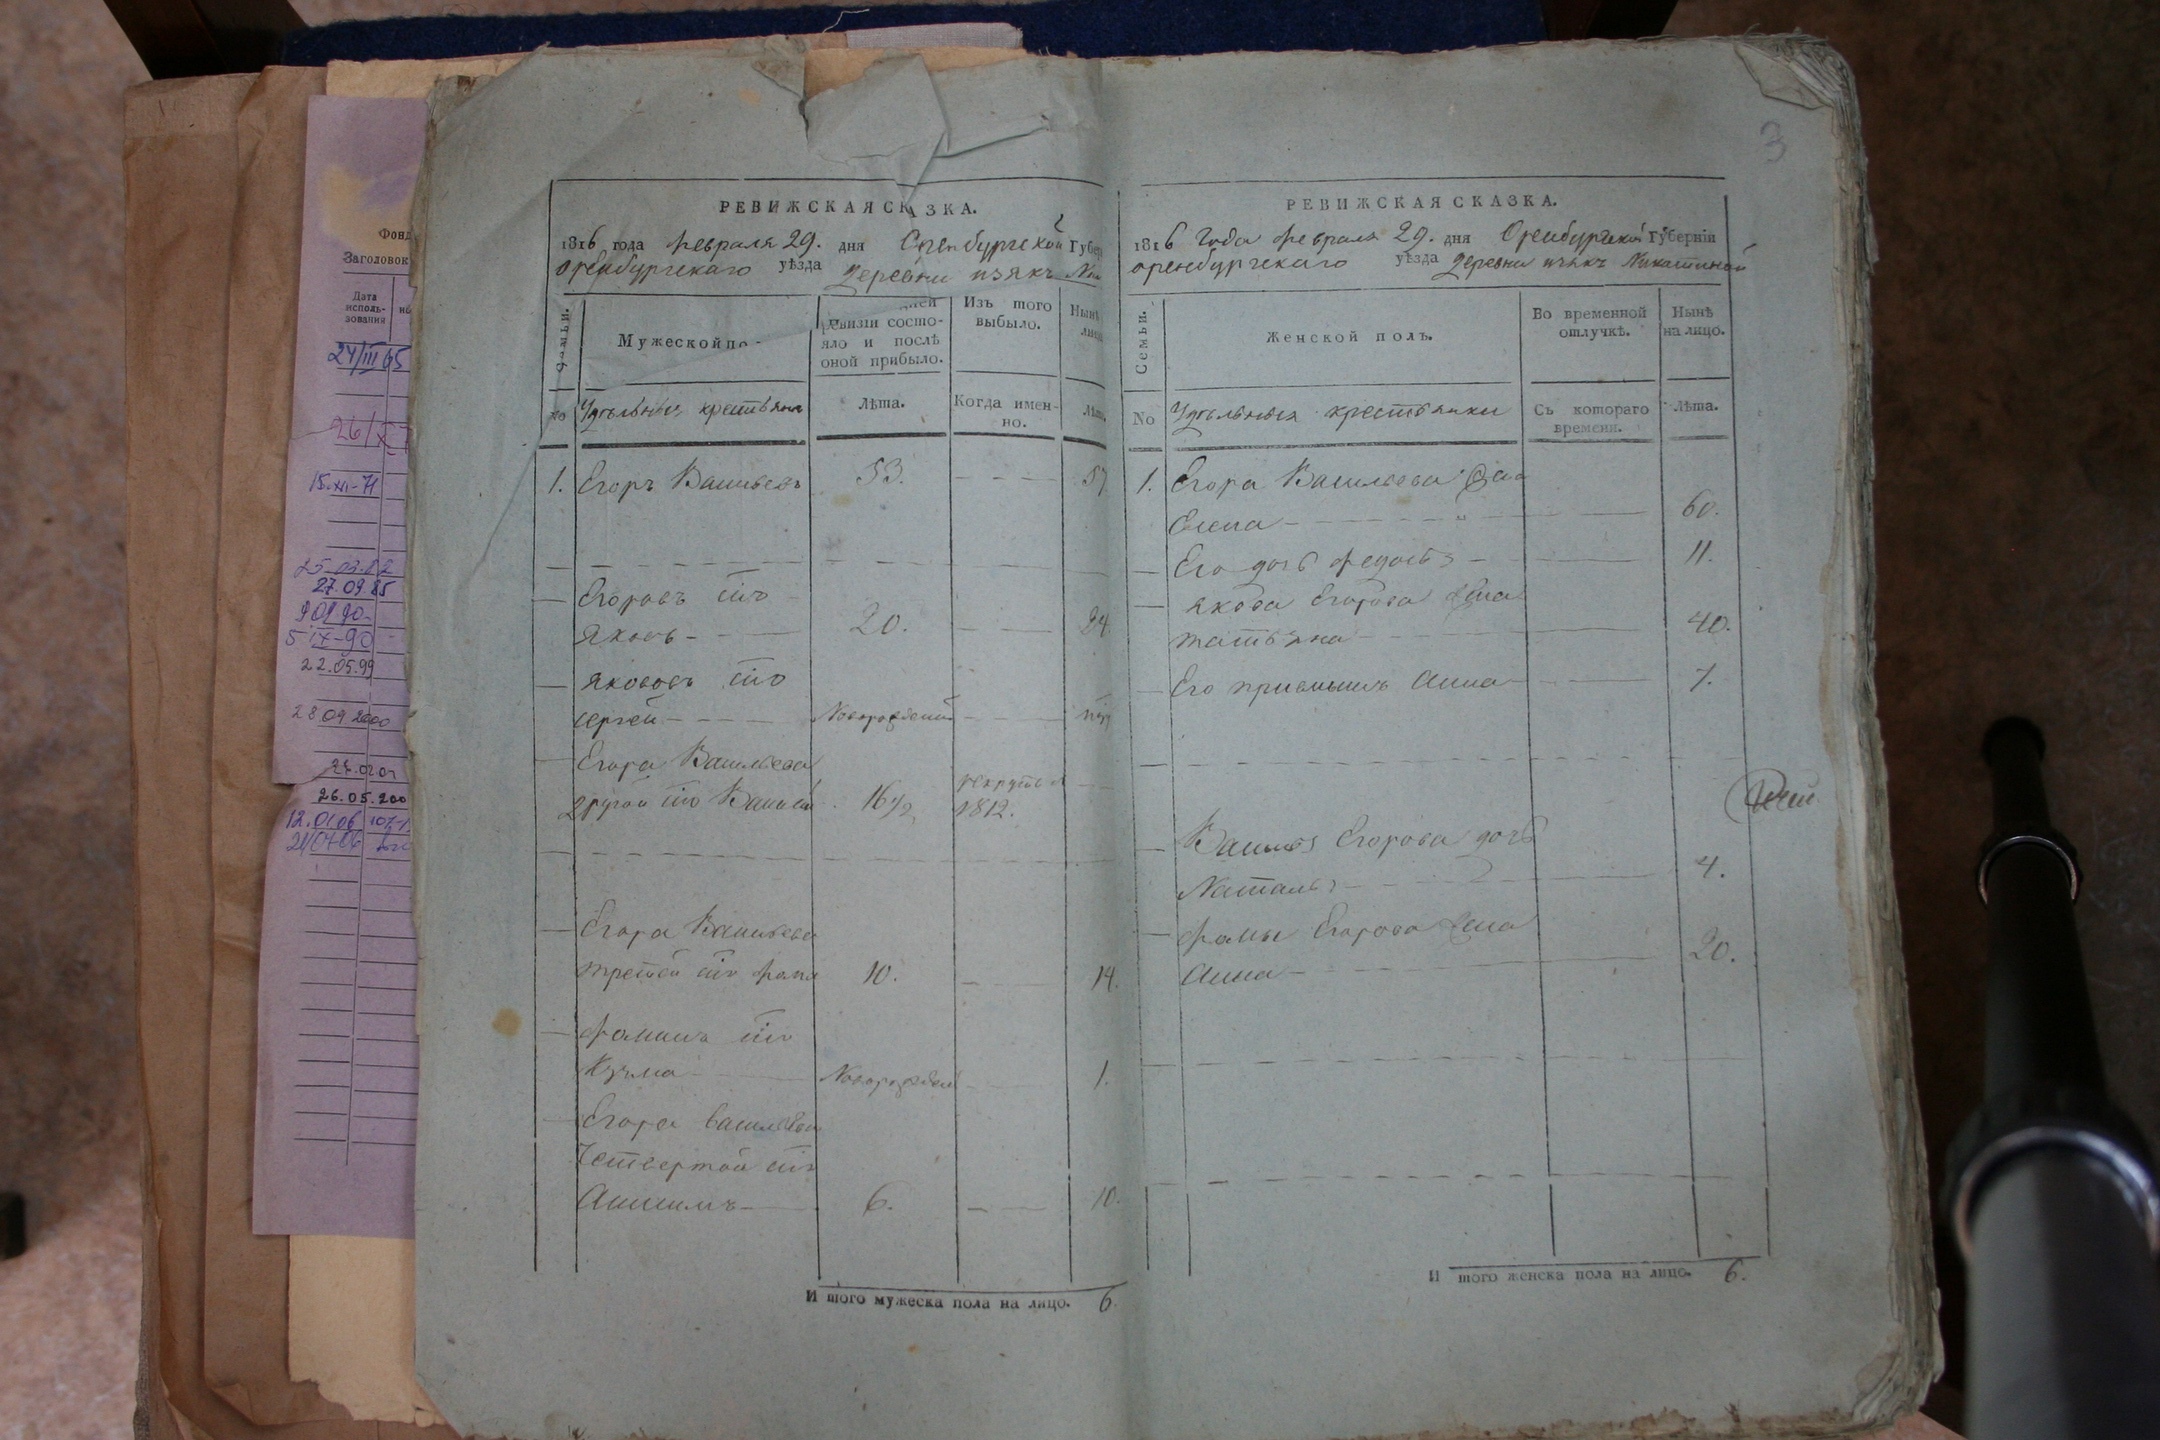 Фонд
Заголовок
Дата
исполь-
зования
24/III 65
26/X
15.XII-71
27.09.85
5 IX-90
22.05.99
28 09 2000
26.05.200
12.01.06
3
РЕВИЖСКАЯ СКАЗКА.
1816 года февраля 29. дня Оренбургской Губер
Оренбургскаго уѣзда Деревни изякъ
Семьи.
Мужеской по-
ревизіи состо-
яло и послѣ
оной прибыло.
Изъ того
выбыло.
Нынѣ
No
Удѣльныя крестьяня
Лѣта.
Когда имен-
но.
Лѣта.
1. Егоръ Васильевъ 53. 57
Егоровъ сынъ
Яковъ 20. 24.
Яковъ сынъ
Сергей Новорожденный
Егора Васильева
другой сынъ Василей 16 1/2 рекрутъ в
1812.
Егора Васильева
третей сынъ Фома 10. 14.
Фоминъ сынъ
Кузма Новорожденный 1.
Егора Васильева
Четвертой сынъ
Анисимъ 6. 10.
Итого мужеска пола на лицо. 6.
РЕВИЖСКАЯ СКАЗКА.
1816 Года февраля 29. дня Оренбургской Губерніи
Оренбургскаго уѣзда Деревни изякъ Никитиной
Семьи.
Женской полъ.
Во временной
отлучкѣ.
Нынѣ
на лицо.
No
Удѣльныя крестьянки
Съ котораго
времени.
Лѣта.
1. Егора Васильева жена
Елена 60.
Его дочь Федосья 11.
Якова Егорова жена
Татьяна 40.
Его приемышъ Анна 7.
Василья Егорова дочь
Наталья 4.
Фомы Егорова жена
Анна 20.
Итого женска пола на лицо. 6.